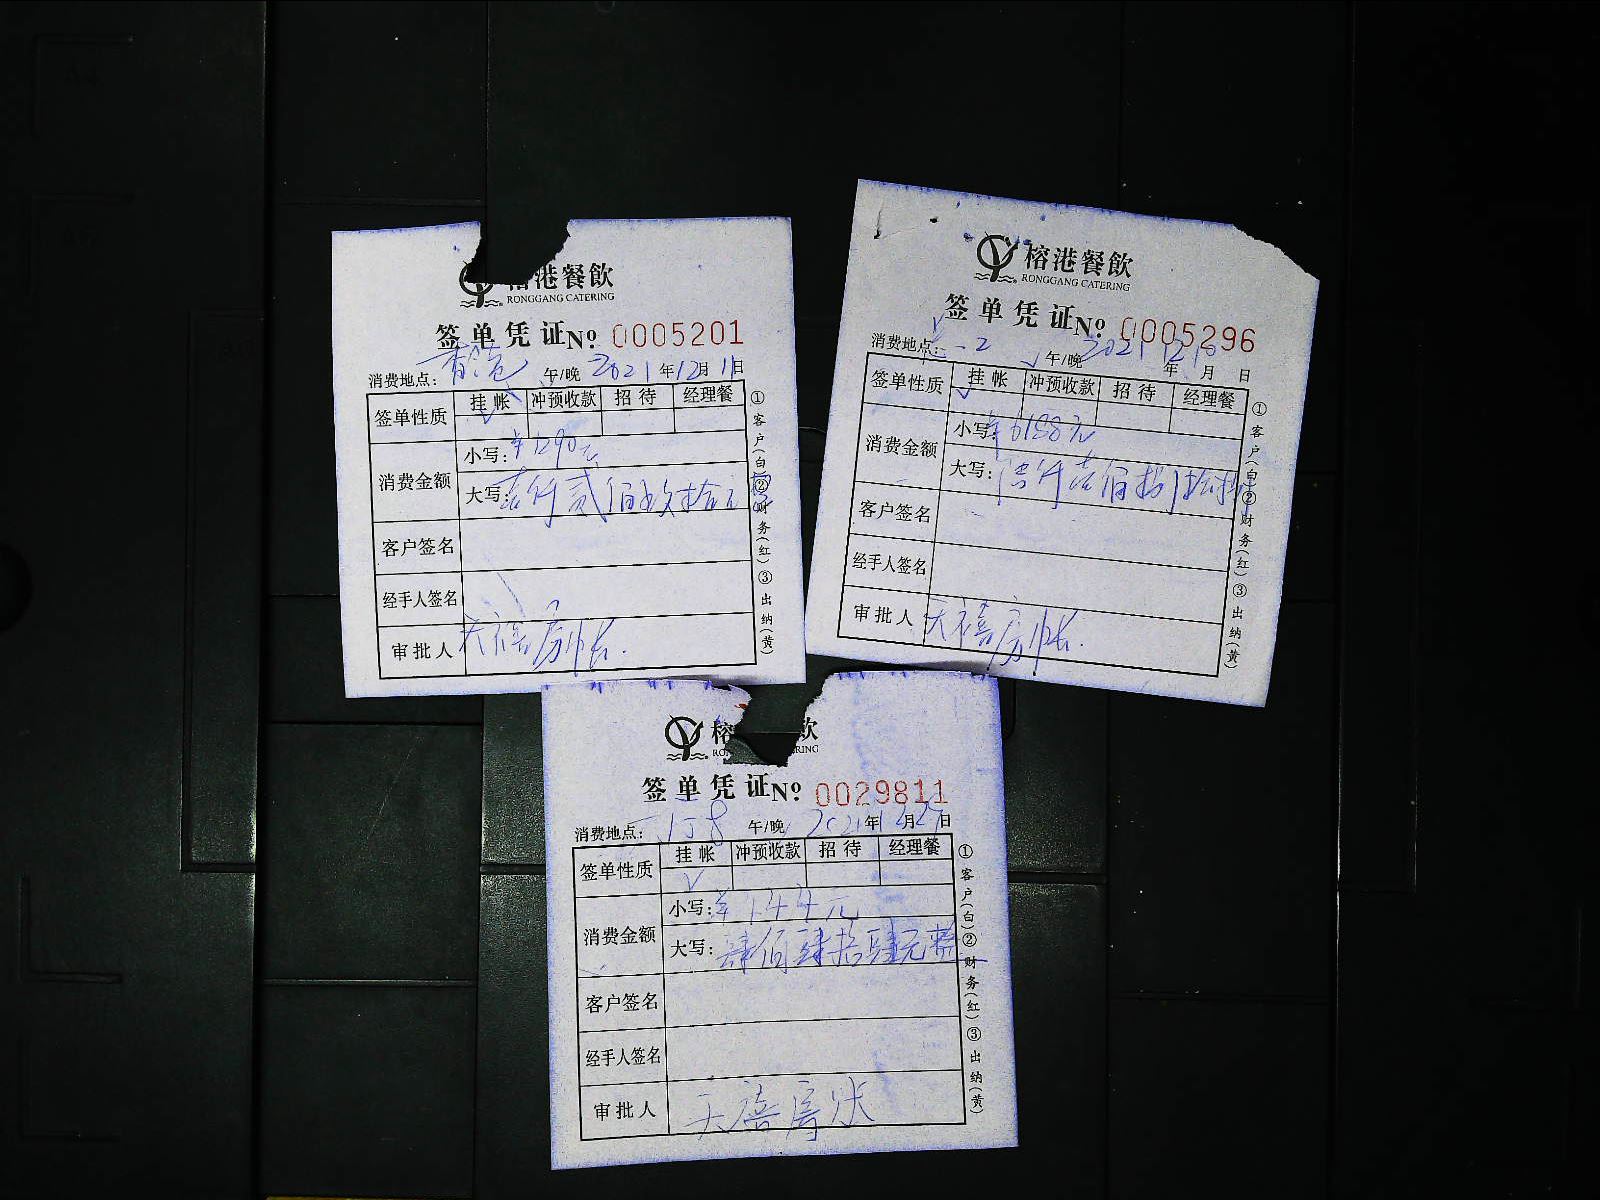 港餐飲
RONGGANG CATERING
签单凭证№ 0005201
消费地点: 香港 午/晚 2021年12月11日
签单性质 挂帐 冲预收款 招待 经理餐
消费金额
小写: ¥1290元
大写: 壹仟贰佰玖拾元整
客户签名
经手人签名
审批人 天禧房帐.
①客户(白)②财务(红)③出纳(黄)
榕港餐飲
RONGGANG CATERING
签单凭证№ 0005296
消费地点: 午/晚 2021年12月10日
签单性质 挂帐 冲预收款 招待 经理餐
消费金额
小写: ¥6188元
大写: 仟壹佰捌拾捌
客户签名
经手人签名
审批人 天禧房帐.
①客户(白)②财务(红)③出纳(黄)
榕 飲
签单凭证№ 0029811
消费地点: 午/晚 2021年12月29日
签单性质 挂帐 冲预收款 招待 经理餐
消费金额
小写: ¥444元
大写: 肆佰肆拾肆元整
客户签名
经手人签名
审批人 天禧房帐
①客户(白)②财务(红)③出纳(黄)